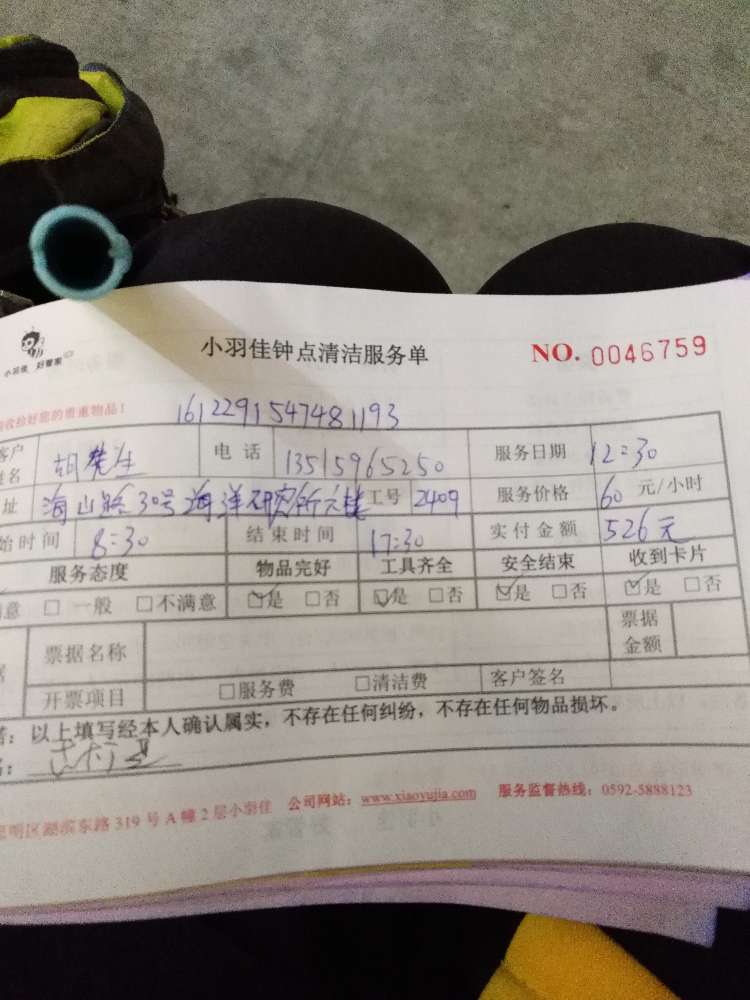 小羽佳 好管家
小羽佳钟点清洁服务单 NO. 0046759
收拾好您的贵重物品！ 1612291547481193
客户姓名 胡先生 电话 13515965250 服务日期 12:30
址 海山路30号海洋研究所六楼 工号 2409 服务价格 60 元/小时
始时间 8:30 结束时间 17:30 实付金额 526元
服务态度 物品完好 工具齐全 安全结束 收到卡片
意 □一般 □不满意 ☑是 □否 ☑是 □否 ☑是 □否 ☑是 □否
据 票据名称 票据金额
开票项目 □服务费 □清洁费 客户签名
：以上填写经本人确认属实，不存在任何纠纷，不存在任何物品损坏。
明区湖滨东路 319 号 A 幢 2 层小羽佳 公司网站：www.xiaoyujia.com 服务监督热线：0592-5888123